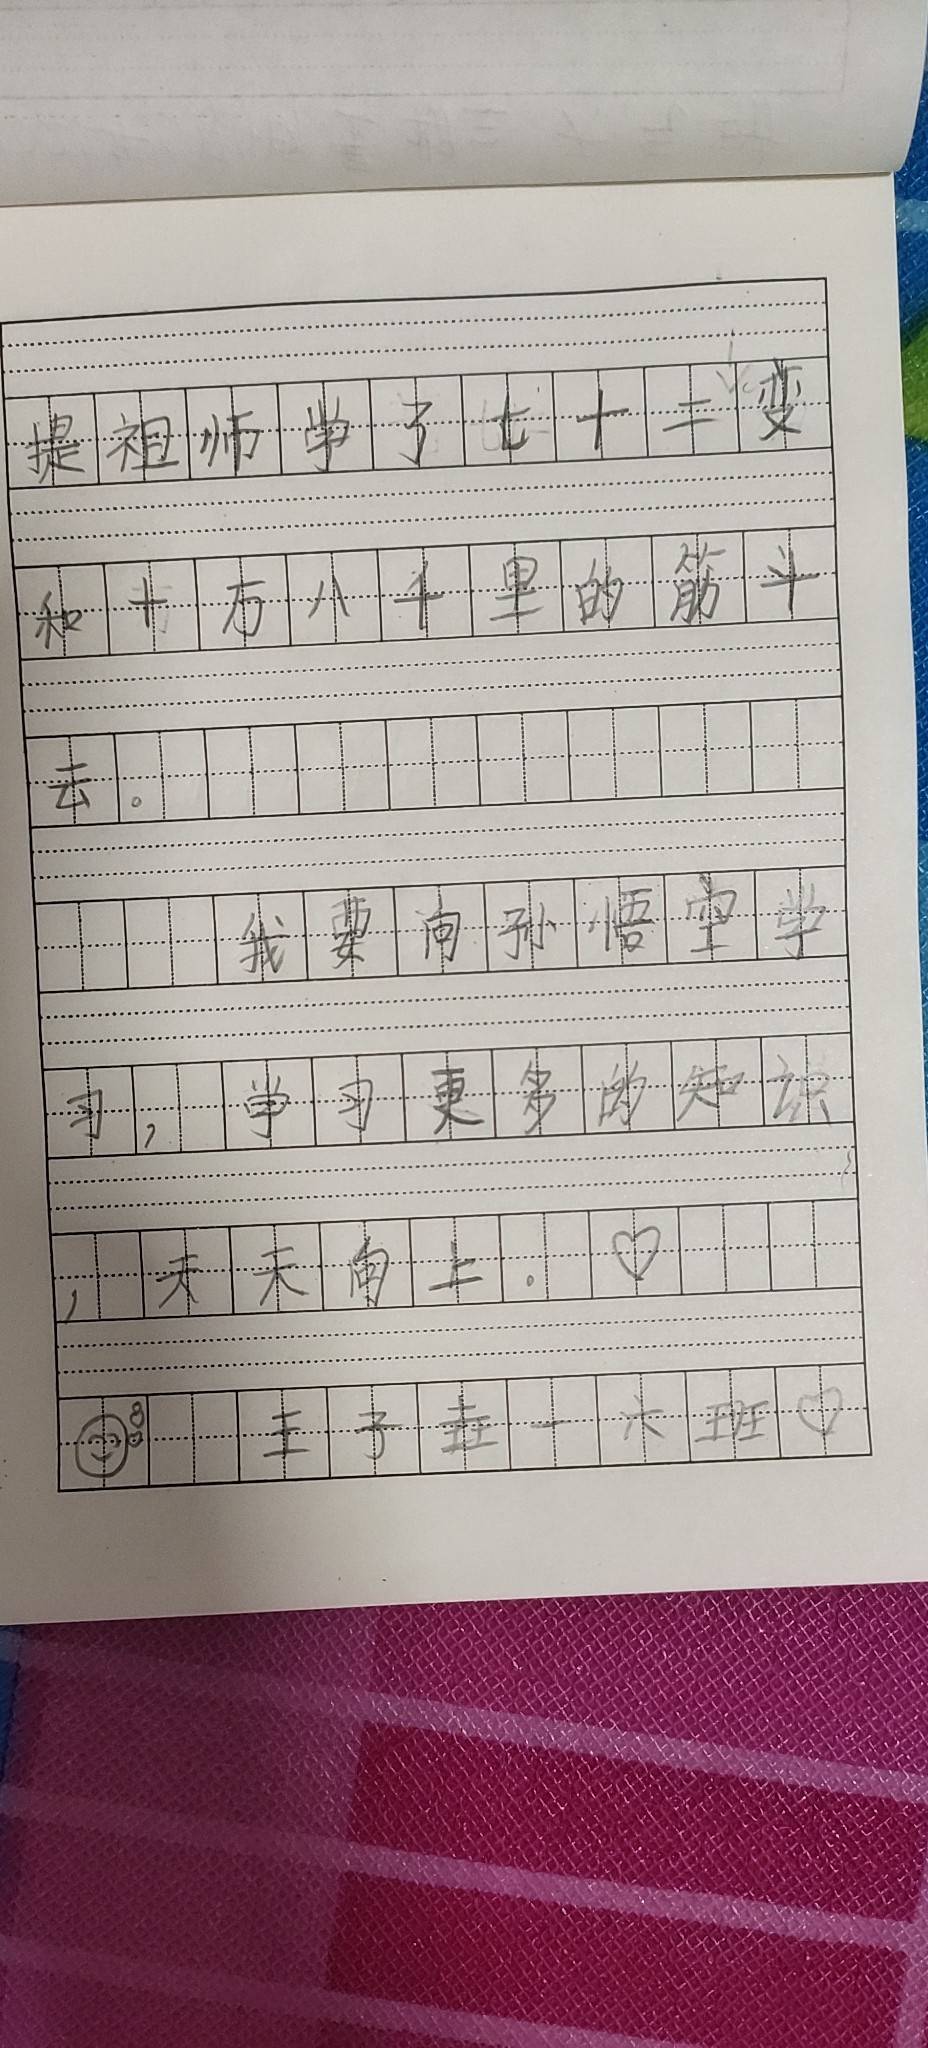 提祖师学了七十二变
和十万八千里的筋斗
云。
我要向孙悟空学
习，学习更多的知识
，天天向上。
王子 一六班